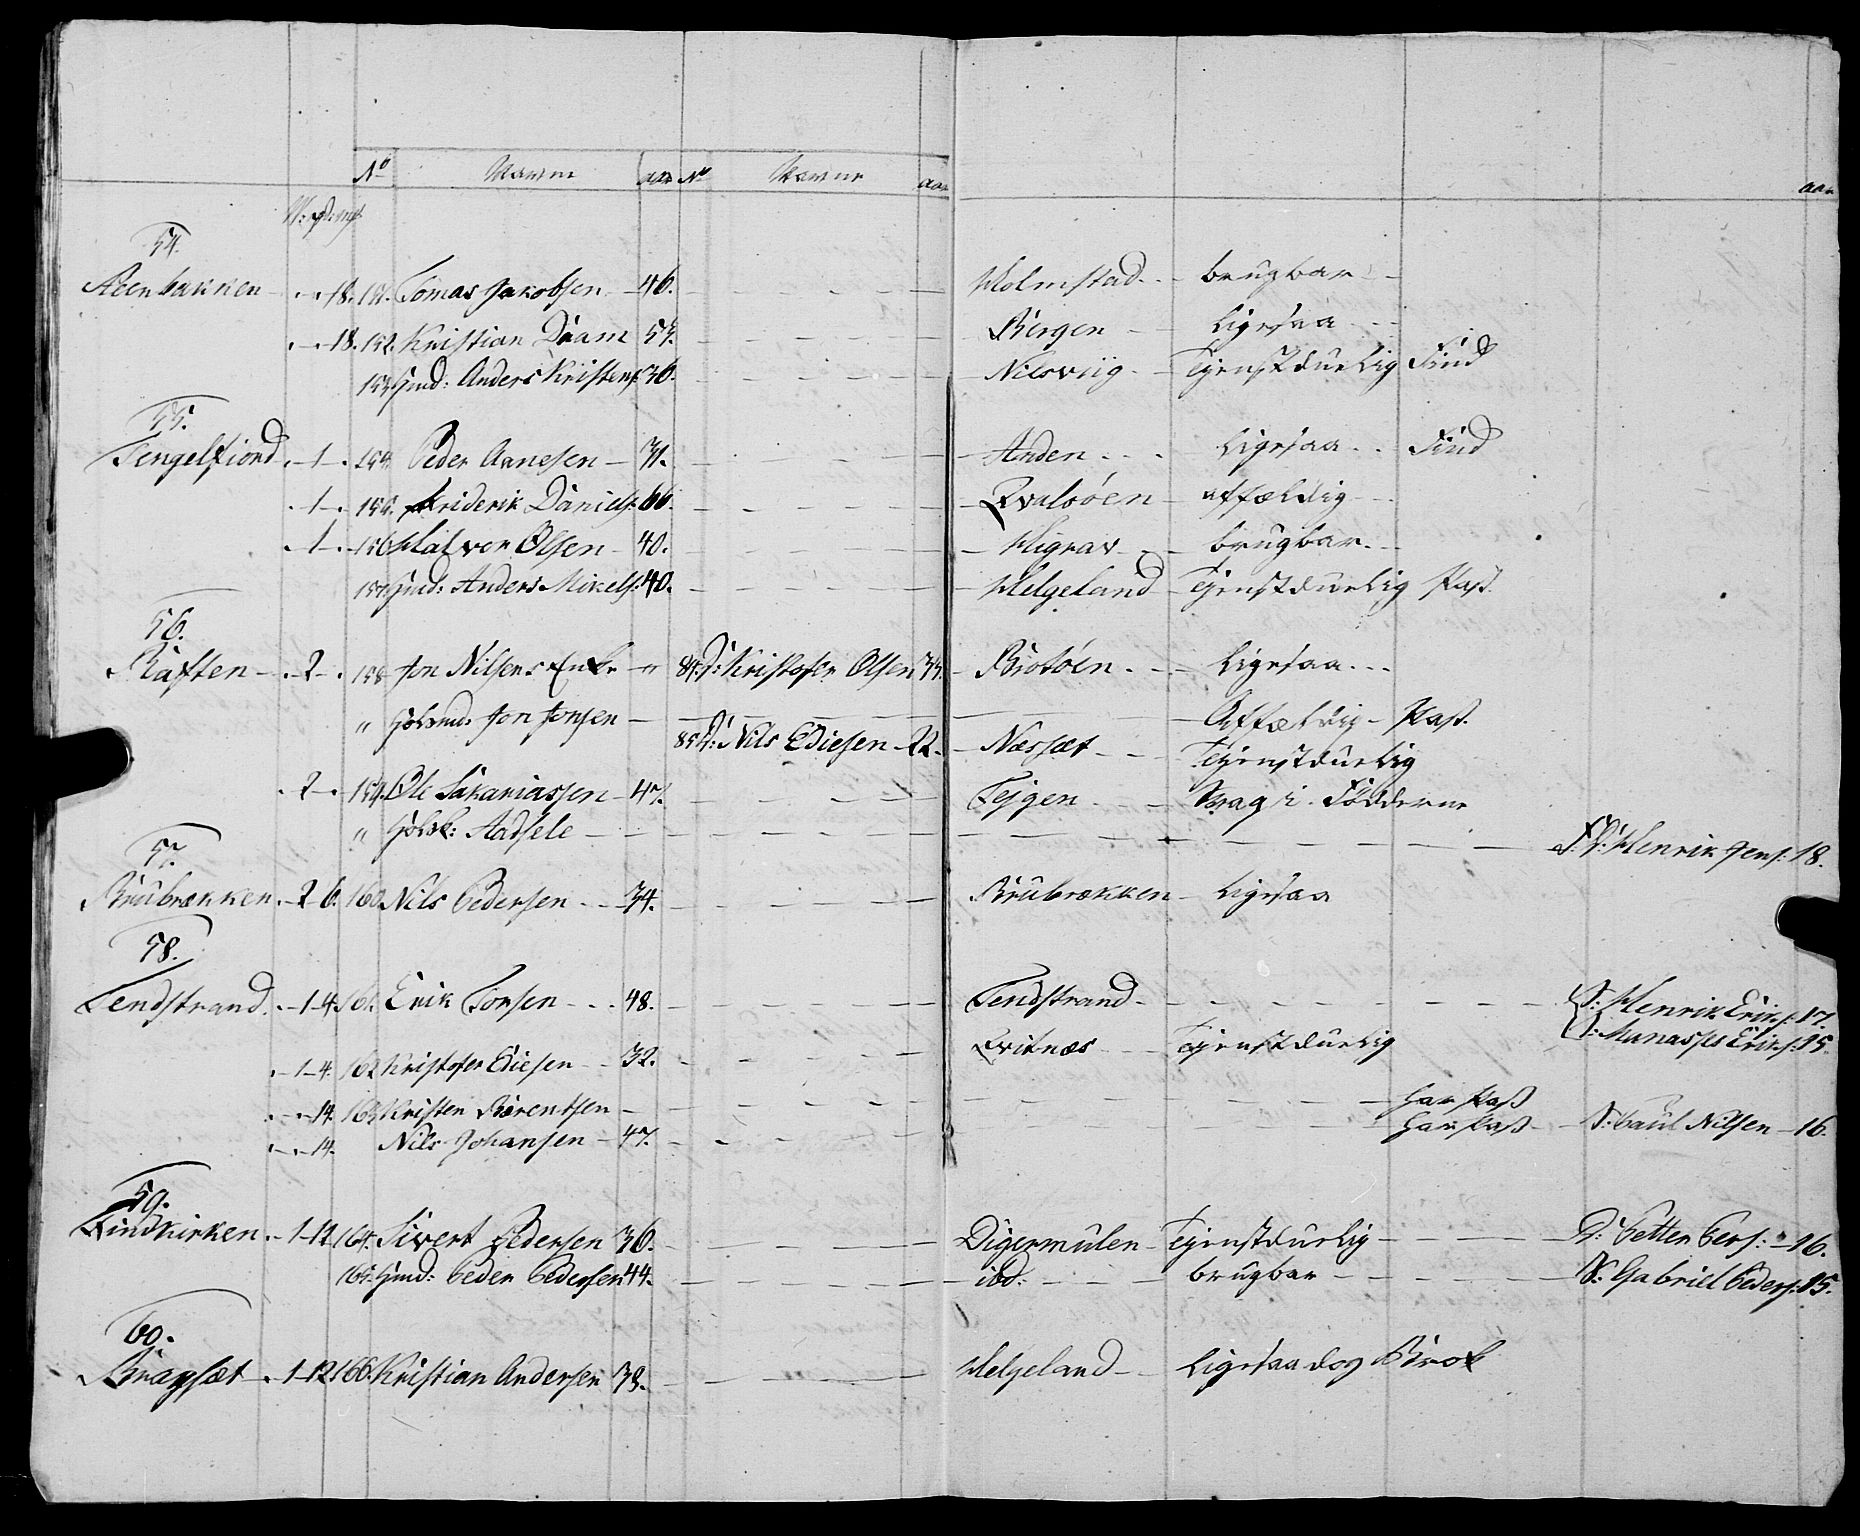 No Navne aar No Navne aar aar
54.
Reenbakken - 18. 151. Tomas Jakobsen 46. Holmstad brugbar
18. 152. Kristian Daam 53. Bergen Ligesaa
153 Hmd: Anders Kristens: 36. Nilsviig Tjenstduelig Find
55.
Tengelfiord 1 154 Peder Arnesen 31. Anden Ligesaa Find
1 155. Friderik Daniels: 66. Qvalsöen affældig
1 156 Halvor Olsen 40. Higrav brugbar
157 Hmd: Anders Mikels: 40. Helgeland Tjenstduelig Pass.
56.
Raften 2 158 Jon Nilsens Enke " 84. D: Kristofer Olsen 33. Brotöen Ligesaa
" Jon Jonsen Affældig Pass.
85 D: Nils Ediesen 22. Næssæt Tjenstduelig
2 159. Ole Sakariassen 47. Tejgen Svag i Födderne
" Aadsele D: Henrik Jens: 18.
57.
Brubrækken 2 6. 160. Nils Pedersen 34. Brubrækken Ligesaa
58.
Tendstrand 1 4. 161. Erik Torsen 48. Tendstrand S: Henrik Eriks: 17.
S: Manasses Eriks: 15.
1 4. 162 Kristofer Ediesen 32. Qvitnæs Tjenstduelig
14. 163 Kristen Bærentsen har Pass
14. Nils Johansen 47. har Pass S: Paul Nilsen 16.
59.
Findkirken 1 12 164. Sivert Pedersen 36. Digermulen Tjenstduelig D: Petter Pers: 16.
165. Hmd: Peder Pedersen 44. ibd: brugbar S: Gabriel Peders: 15.
60.
Bragsæt 1 12 166. Kristian Andersen 38. Helgeland Ligesaa dog Brok